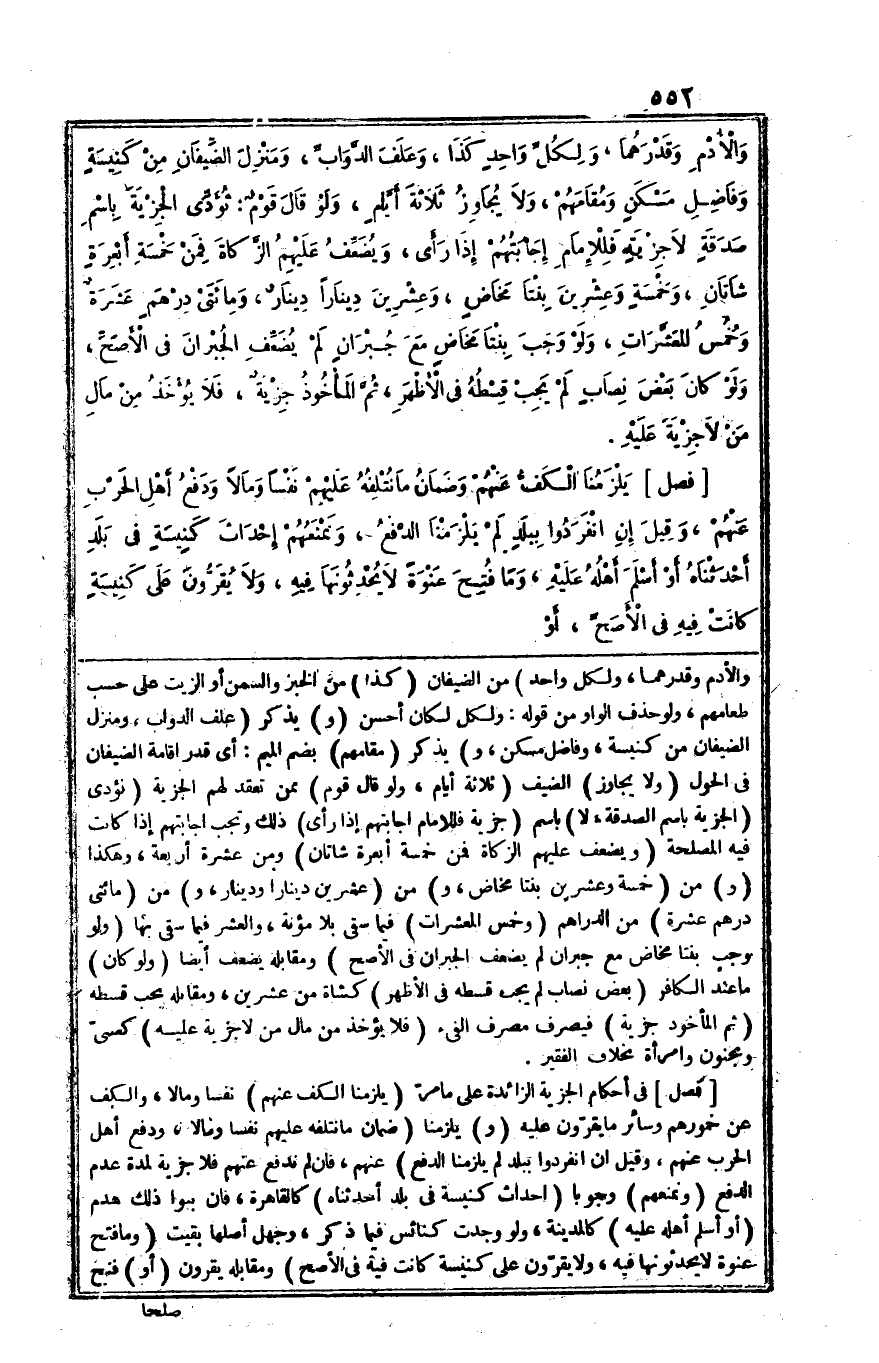 ٥٥٢
وَالْأُدْمِ وَقَدْرَهُمَا ، وَلِكُلِّ وَاحِدٍ كَذَا ، وَعَلَفَ الدَّوَابِّ ، وَمَنْزِلَ الضِّيفَانِ مِنْ كَنِيسَةٍ
وَفَاضِلِ مَسْكَنٍ وَمُقَامَهُمْ ، وَلَا يُجَاوِزُ ثَلَاثَةَ أَيَّامٍ ، وَلَوْ قَالَ قَوْمٌ : نُؤَدِّى الْجِزْيَةَ بِاسْمِ
صَدَقَةٍ لَا جِزْيَةٍ فَلِلْإِمَامِ إِجَابَتُهُمْ إِذَا رَأَى ، وَيُضَعِّفُ عَلَيْهِمُ الزَّكَاةَ فَمِنْ خَمْسَةِ أَبْعِرَةٍ
شَاتَانِ ، وَخَمْسَةٍ وَعِشْرِينَ بِنْتَا مَخَاضٍ ، وَعِشْرِينَ دِينَاراً دِينَارٌ ، وَمِائَتَىْ دِرْهَمٍ عَشَرَةٌ
وَخُمُسُ الْمُعَشَّرَاتِ ، وَلَوْ وَجَبَ بِنْتَا مَخَاضٍ مَعَ جُبْرَانٍ لَمْ يُضَعِّفِ الْجُبْرَانَ فِى الْأَصَحِّ ،
وَلَوْ كَانَ بَعْضَ نِصَابٍ لَمْ يَجِبْ قِسْطُهُ فِى الْأَظْهَرِ ، ثُمَّ الْمَأْخُوذُ جِزْيَةٌ ، فَلَا يُؤْخَذُ مِنْ مَالِ
مَنْ لَا جِزْيَةَ عَلَيْهِ .
[ فصل ] يَلْزَمُنَا الْكَفُّ عَنْهُمْ وَضَمَانُ مَا نُتْلِفُهُ عَلَيْهِمْ نَفْساً وَمَالاً وَدَفْعُ أَهْلِ الْحَرْبِ
عَنْهُمْ ، وَقِيلَ إِنِ انْفَرَدُوا بِبَلَدٍ لَمْ يَلْزَمْنَا الدَّفْعُ ، وَنَمْنَعُهُمْ إِحْدَاثَ كَنِيسَةٍ فِى بَلَدٍ
أَحْدَثْنَاهُ أَوْ أَسْلَمَ أَهْلُهُ عَلَيْهِ ، وَمَا فُتِحَ عَنْوَةً لَا يُحْدِثُونَهَا فِيهِ ، وَلَا يُقَرُّونَ عَلَى كَنِيسَةٍ
كَانَتْ فِيهِ فِى الْأَصَحِّ ، أَوْ
والأدم وقدرهما ، ولكل واحد ) من الضيفان ( كذا ) من الخبز والسمن أو الزيت على حسب
طعامهم ، ولو حذف الواو من قوله : ولكل لكان أحسن ( و ) يذكر ( علف الدواب ، ومنزل
الضيفان من كنيسة ، وفاضل مسكن ، و ) يذكر ( مقامهم ) بضم الميم : أى قدر اقامة الضيفان
فى الحول ( ولا يجاوز ) الضيف ( ثلاثة أيام ، ولو قال قوم ) ممن تعقد لهم الجزية ( نؤدى
( الجزية باسم الصدقة ، لا ) باسم ( جزية فللامام اجابتهم إذا رأى ) ذلك وتجب اجابتهم إذا كانت
فيه المصلحة ( ويضعف عليهم الزكاة فمن خمسة أبعرة شاتان ) ومن عشرة أربعة ، وهكذا
( و ) من ( خمسة وعشرين بنتا مخاض ، و ) من ( عشرين دينارا ودينار ، و ) من ( مائتى
درهم عشرة ) من الدراهم ( وخمس المعشرات ) فيما سقى بلا مؤنة ، والعشر فيما سقى بها ( ولو
وجب بنتا مخاض مع جبران لم يضعف الجبران فى الأصح ) ومقابله يضعف أيضا ( ولو كان )
ما عند الكافر ( بعض نصاب لم يجب قسطه فى الأظهر ) كشاة من عشرين ، ومقابله يجب قسطه
( ثم المأخوذ جزية ) فيصرف مصرف الفىء ( فلا يؤخذ من مال من لا جزية عليه ) كصبىّ
ومجنون وامرأة بخلاف الفقير .
[ فصل ] فى أحكام الجزية الزائدة على ما مرّ ( يلزمنا الكف عنهم ) نفسا ومالا ، والكف
عن خمورهم وسائر ما يقرّون عليه ( و ) يلزمنا ( ضمان ما نتلفه عليهم نفسا ومالا ، ودفع أهل
الحرب عنهم ، وقيل ان انفردوا ببلد لم يلزمنا الدفع ) عنهم ، فان لم ندفع عنهم فلا جزية لمدة عدم
الدفع ( ونمنعهم ) وجوبا ( احداث كنيسة فى بلد أحدثناه ) كالقاهرة ، فان بنوا ذلك هدم
( أو أسلم أهله عليه ) كالمدينة ، ولو وجدت كنائس فيما ذكر ، وجهل أصلها بقيت ( وما فتح
عنوة لا يحدثونها فيه ، ولا يقرّون على كنيسة كانت فيه فى الأصح ) ومقابله يقرون ( أو ) فتح
صلحا